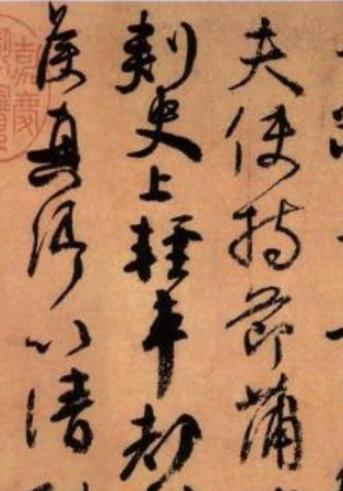 夫使持節蒲
刺史上輕車都
侯真卿以清